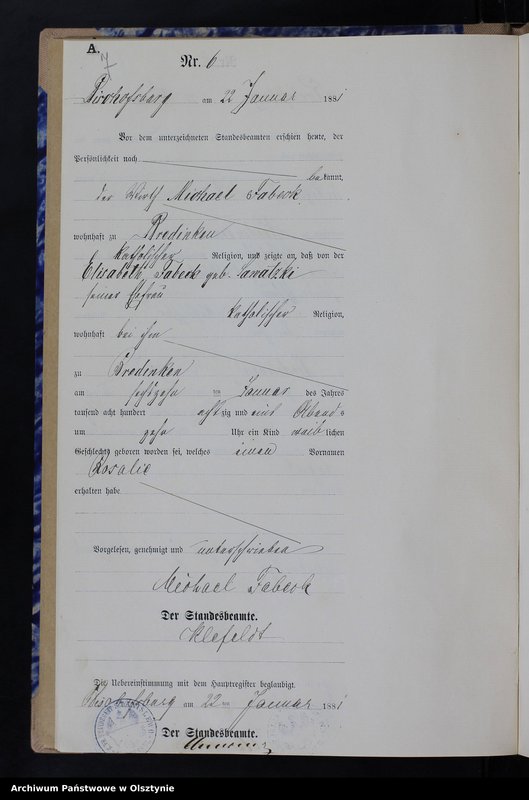 A.
7
Nr. 6
Bischofsburg am 22 Januar 1881
Vor dem unterzeichneten Standesbeamten erschien heute, der
Persönlichkeit nach
bekannt,
der Wirth Michael Fabeck
wohnhaft zu Bredinken
katholischer Religion, und zeigte an, daß von der
Elisabeth Fabeck geb. Sawatzki
seiner Ehefrau
katholischer Religion,
wohnhaft bei ihm
zu Bredinken
am sechszehn ten Januar des Jahres
tausend acht hundert achtzig und eins Abends
um zehn Uhr ein Kind weiblichen
Geschlechts geboren worden sei, welches einen Vornamen
Rosalie
erhalten habe
Vorgelesen, genehmigt und unterschrieben
Michael Fabeck
Der Standesbeamte.
Klefeldt
Die Uebereinstimmung mit dem Hauptregister beglaubigt.
Bischofsburg am 22 ten Januar 1881
Der Standesbeamte.
Archiwum Państwowe w Olsztynie